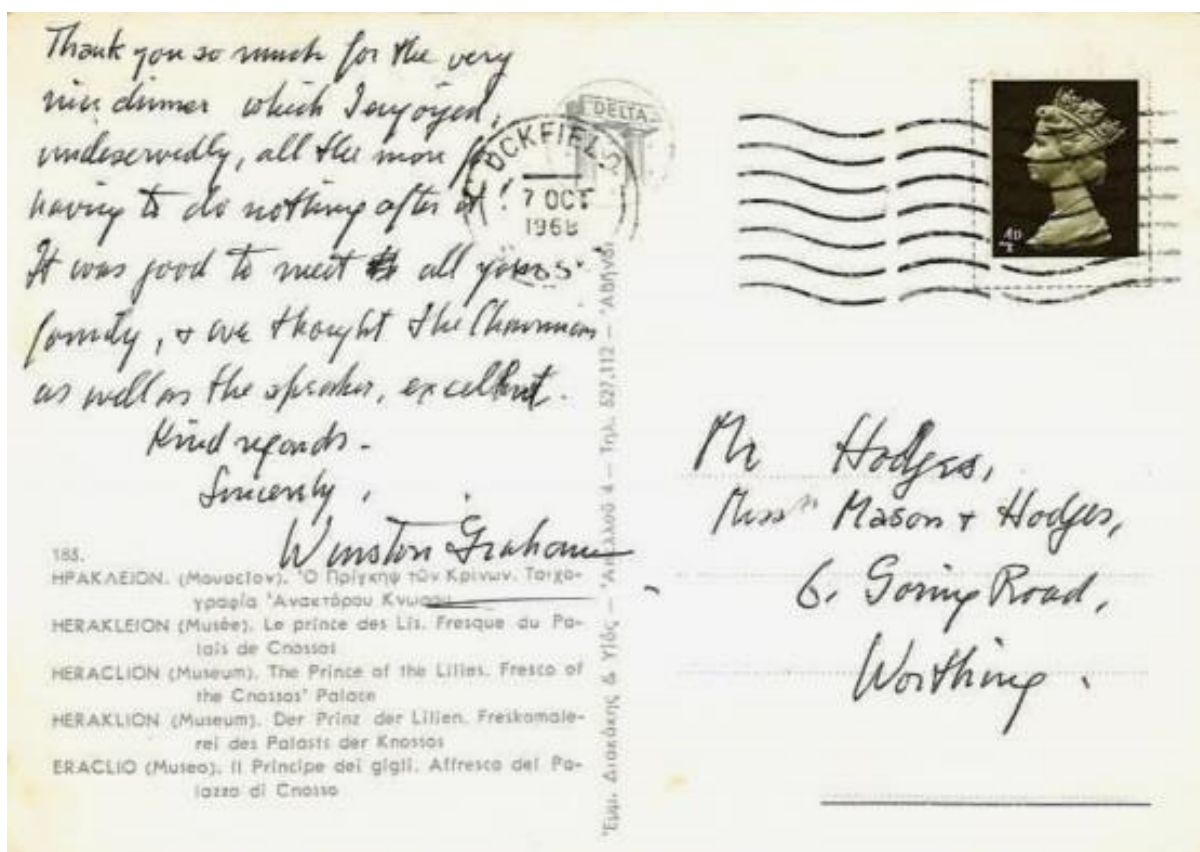 Thank you so much for the very
nice dinner which I enjoyed,
undeservedly, all the more for
having to do nothing after it!
It was good to meet all your
family, & we thought the Chairman
as well as the speaker, excellent.
Kind regards.
Sincerely,
Winston Graham
DELTA
UCKFIELD
7 OCT
1968
4D
Mr Hodges,
Mason & Hodges,
6, Goring Road,
Worthing.
183.
ΗΡΑΚΛΕΙΟΝ. (Μουσεῖον). Ὁ Πρίγκηψ τῶν Κρίνων. Τοιχο-
γραφία Ἀνακτόρου Κνωσοῦ
HERAKLEION (Musée). Le prince des Lis. Fresque du Pa-
lais de Cnossos
HERACLION (Museum). The Prince of the Lilies. Fresco of
the Cnossos' Palace
HERAKLION (Museum). Der Prinz der Lilien. Freskomale-
rei des Palasts der Knossos
ERACLIO (Museo). Il Principe dei gigli. Affresco del Pa-
lazzo di Cnosso
Ἐμμ. Διακάκης & Υἱός — 4 — Τηλ. 527.112 — Ἀθῆναι